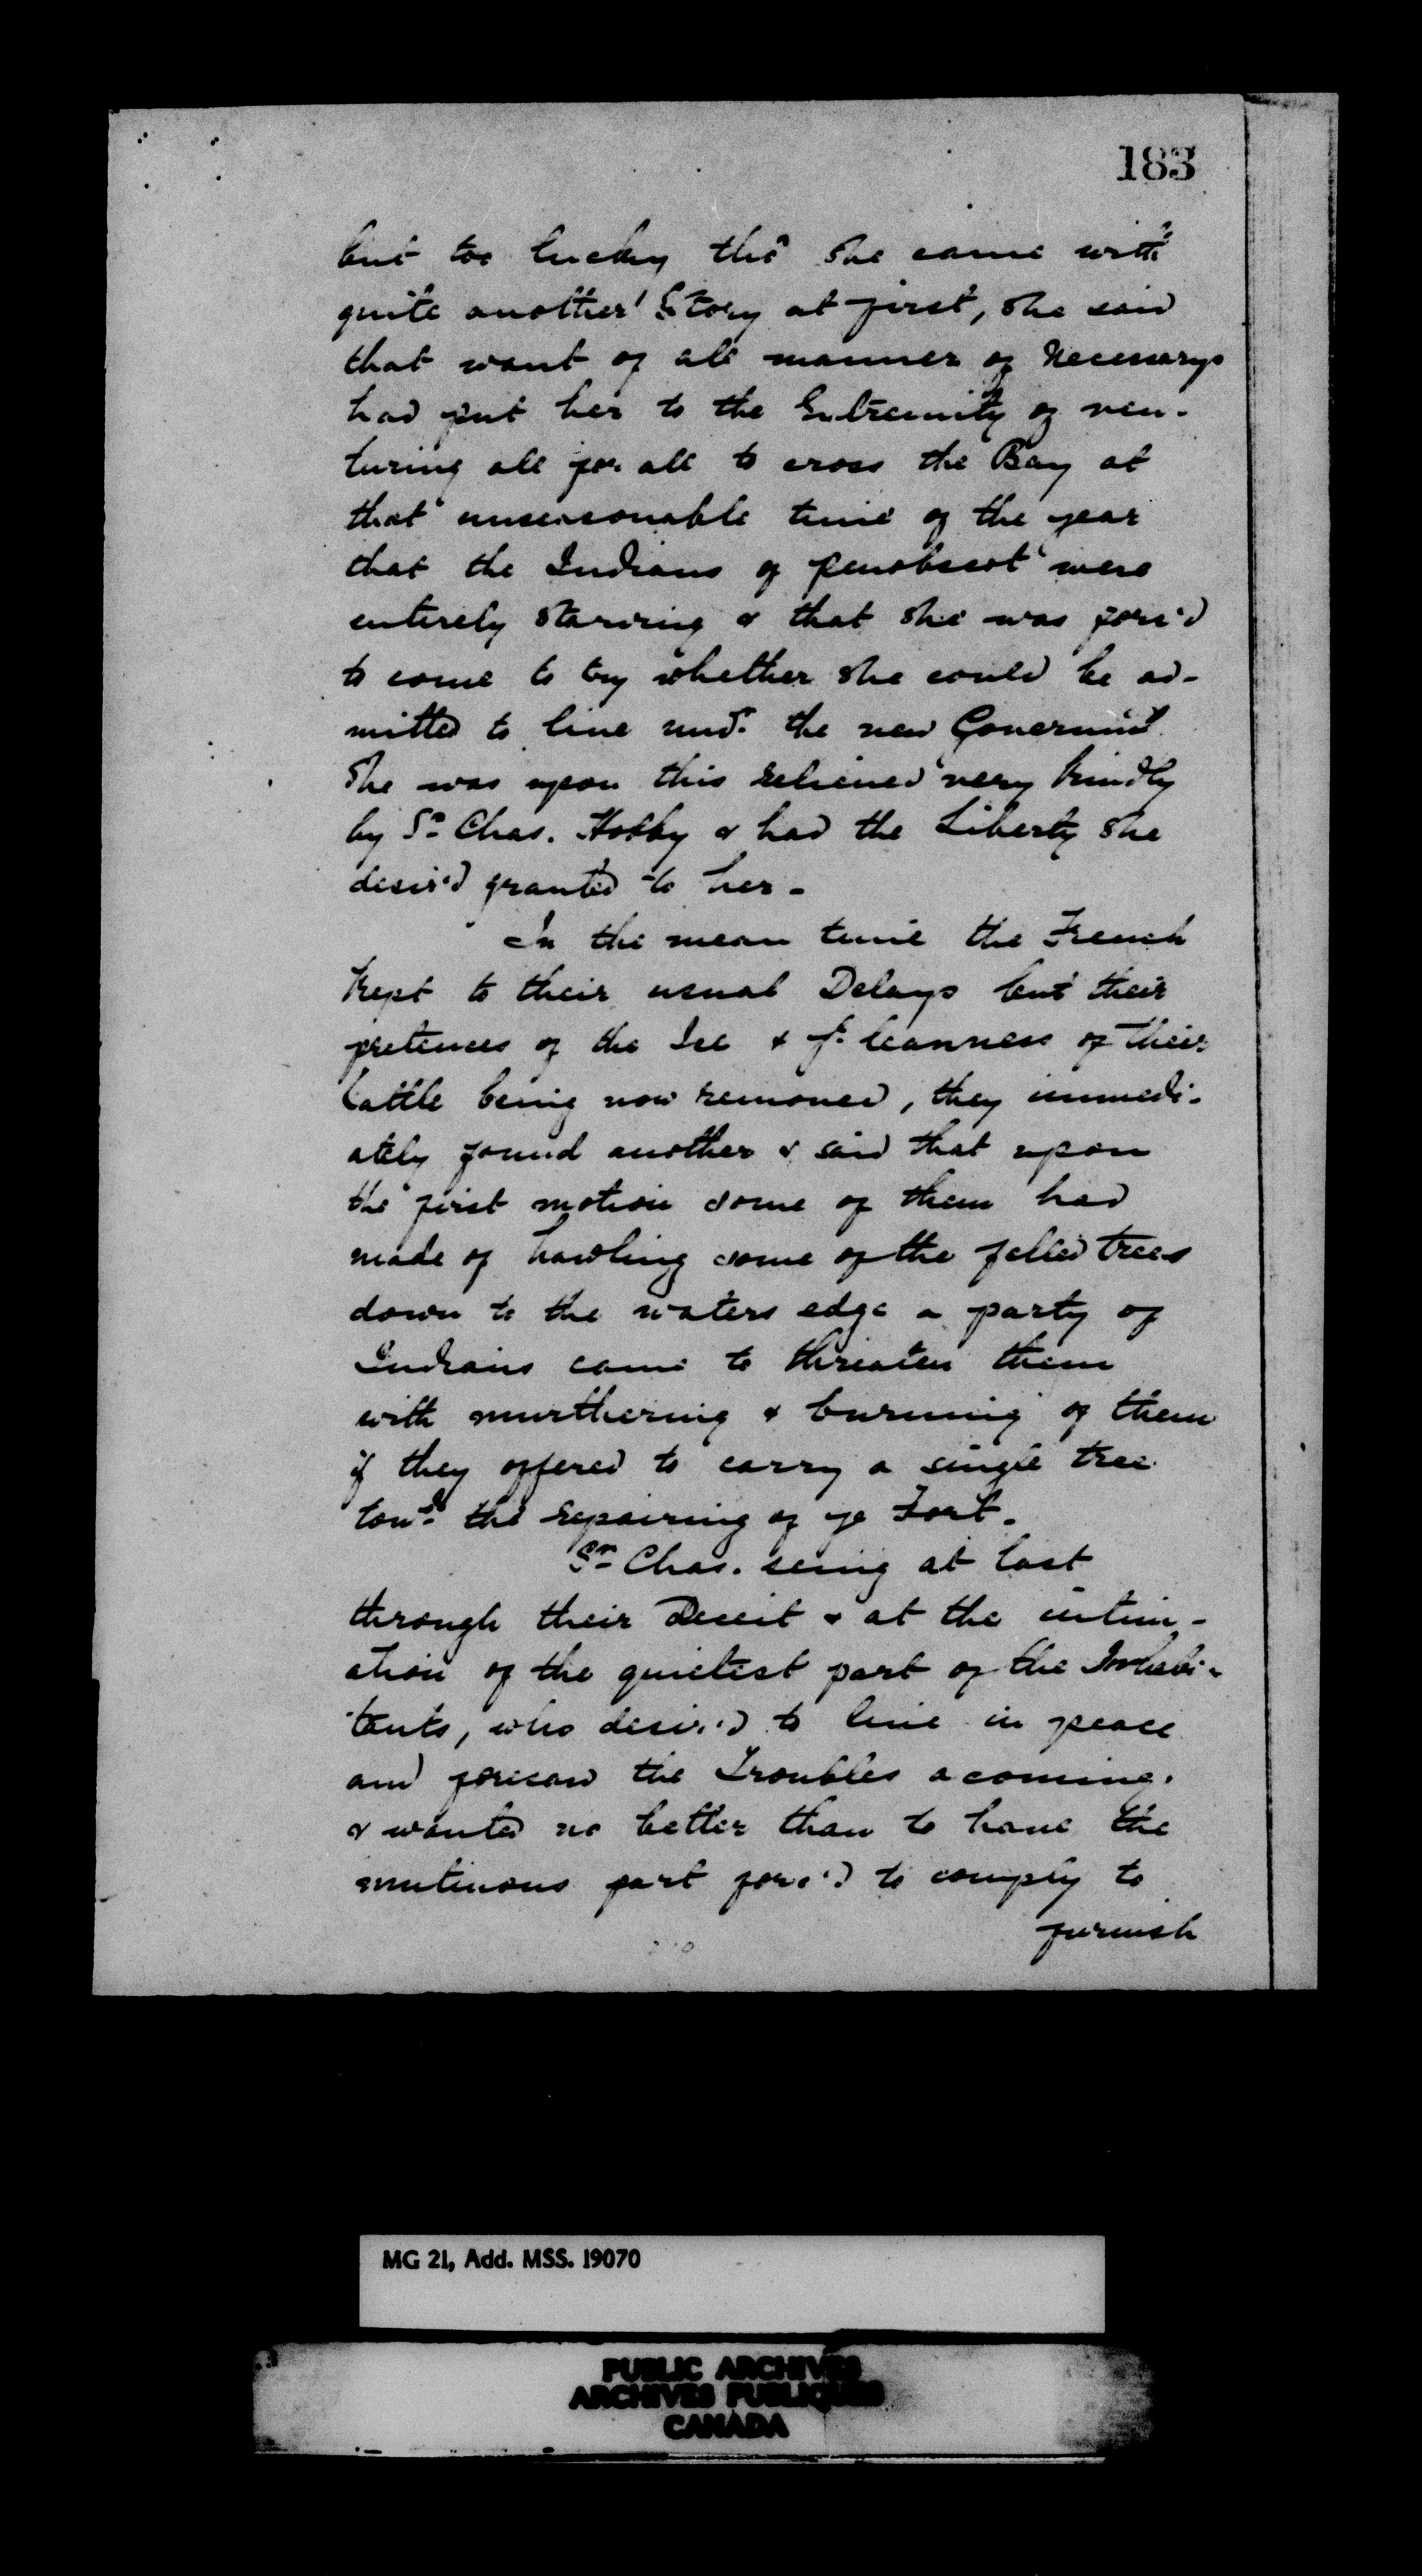 183
but too lucky tho' she came with
quite another Story at first, she said
that want of all manner of Necessarys
had put her to the Extremity of ven-
turing all for all to cross the Bay at
that unseasonable time of the year
that the Indians of penobscot were
entirely starving & that she was forc'd
to come to try whether she could be ad-
mitted to live undr. the new Governmt.
She was upon this relieved very kindly
by Sr. Chas. Hobby & had the Liberty she
desir'd granted to her -
In the mean time the French
kept to their usual Delays but their
pretences of the Ice & ye. leanness of their
Cattle being now removed, they immedi-
ately found another & said that upon
the first motion some of them had
made of hawling some of the felled trees
down to the waters edge a party of
Indians came to threaten them
with murthering & burning of them
if they offered to carry a single tree
towds. the repairing of ye Fort.
Sr. Chas. seing at last
through their Deceit & at the intim-
ation of the quietest part of the Inhabi-
tants, who desir'd to live in peace
and foresaw the Troubles a coming.
& wanted no better than to have the
mutinous part forc'd to comply to
furnish
MG 21, Add. MSS. 19070
PUBLIC ARCHIVES
ARCHIVES PUBLIQUES
CANADA